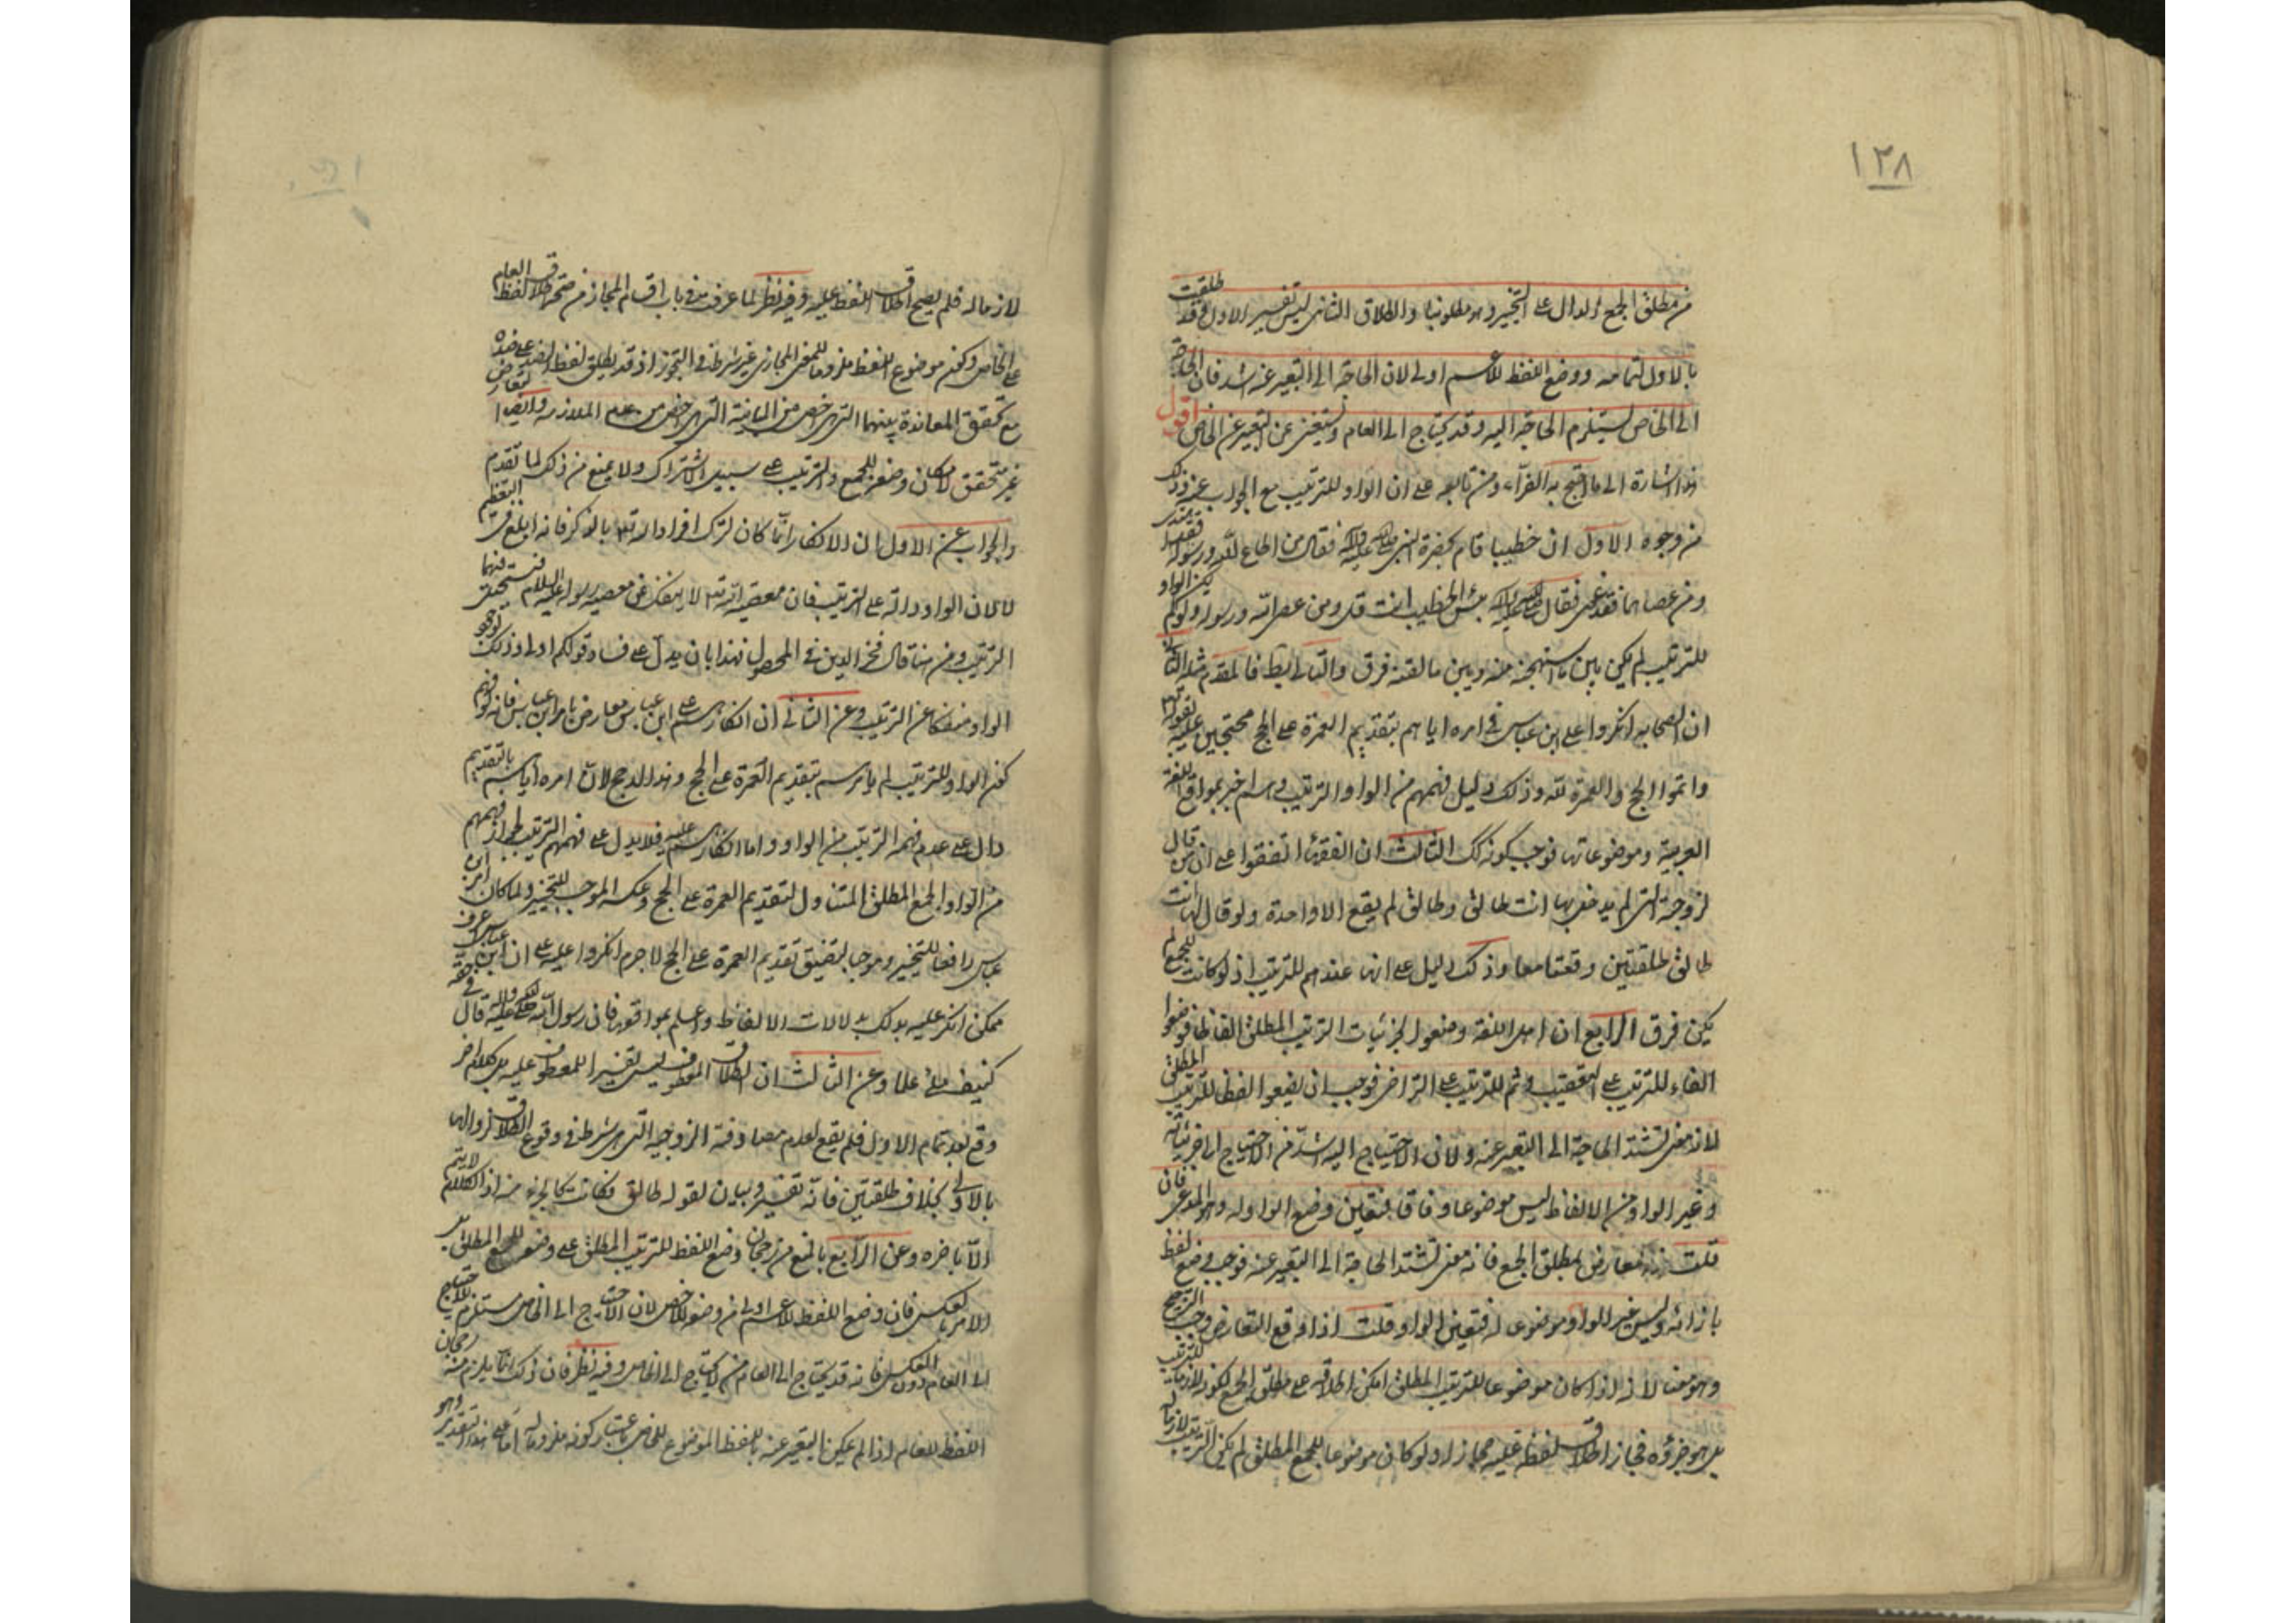 ١٣٨
من مطلق الجمع الدال على التخيير وهو مطلوبنا والطلاق الثانى ليس تفسير الاول وقد طلقت
بالاول لتمامه ووضع اللفظ للاعم اولى لان الحاجة الى التعبير عنه اشد فان الحاجة
الى الخاص يستلزم الحاجة اليه وقد يحتاج الى العام ويستغنى عن التعبير عن الخاص اقول
هذا اشارة الى ما احتج به الفرّاء ومن تابعه على ان الواو للترتيب مع الجواب عنه وذلك
من وجوه الاول ان خطيبا قام بحضرة النبى صلى الله عليه وآله فقال من اطاع الله ورسوله فقد اهتدى
ومن عصاهما فقد غوى فقال صلى الله عليه وآله بئس الخطيب انت قل ومن عصى الله ورسوله ولو لم يكن الواو
للترتيب لم يكن بين ما استهجنه منه وبين ما لقنه فرق والتالى بط فالمقدم مثله الثانى
ان الصحابة انكروا على ابن عباس فى امره اياهم بتقديم العمرة على الحج محتجين عليه بقوله تعالى
واتموا الحج والعمرة لله وذلك دليل فهمهم من الواو الترتيب وهم اخبر بمواقع اللغة
العربية وموضوعاتها فوجب كونه كك الثالث ان الفقهاء اتفقوا على ان من قال
لزوجته التى لم يدخل بها انت طالق وطالق لم يقع الا واحدة ولو قال لها انت
طالق طلقتين وقعتا معا وذلك دليل على انها عندهم للترتيب اذ لو كانت للجمع لم
يكن فرق الرابع ان اهل اللغة وضعوا لجزئيات الترتيب المطلق الفاظا فوضعوا
الفاء للترتيب على التعقيب وثم للترتيب على التراخى فوجب ان يضعوا لفظا للترتيب المطلق
لانه معنى تشتد الحاجة الى التعبير عنه ولان الاحتياج اليه اشد من الاحتياج الى جزئياته
وغير الواو من الالفاظ ليس موضوعا وفاقا فتعين وضع الواو له وهو المدعى فان
قلت هذا معارض بمطلق الجمع فانه معنى تشتد الحاجة الى التعبير عنه فوجب وضع لفظ
بازائه وليس غير الواو موضوعا له فتعين الواو قلت اذا وقع التعارض وجب الترجيح
وهو معنا لانه اذا كان موضوعا للترتيب المطلق امكن اطلاقه على مطلق الجمع لكونه لازما للترتيب
بل هو جزؤه فجاز اطلاق لفظه عليه مجازا ولو كان موضوعا للجمع المطلق لم يكن الترتيب لازما له
لازما له فلم يصح اطلاق اللفظ عليه وفيه نظر لما عرفت من فى باب اقسام المجاز من صحة اطلاق لفظ العام
على الخاص وكون موضوع اللفظ ملزوما للمعنى المجازى غير شرط فى التجوز اذ قد يطلق لفظ الضد على ضده
مع تحقق المعاندة بينهما التى هى اخص من المباينة التى هى اخص من عدم الملازمة وايضا التعارض
غير متحقق لامكان وضعه للجمع والترتيب على سبيل الاشتراك ولا يمنع من ذلك لما تقدم
والجواب عن الاول ان الانكار انما كان لترك افراد الله تعالى بالذكر فانه ابلغ فى التعظيم
لا لان الواو دالة على الترتيب فان معصية الله تعالى لا ينفك عن معصية رسوله عليه السلام فيستحيل فيهما
الترتيب ومن هنا قال فخر الدين فى المحصول فهذا بان يدل على فساد قولكم اولى وذلك لوقوع
الواو منفكا عن الترتيب وعن الثانى ان انكارهم على ابن عباس معارض بامر ابن عباس فانه لو فهم
كون الواو للترتيب لم يامرهم بتقديم العمرة على الحج وهذا ارجح لان امره اياهم بالتقديم
دال على عدم فهمه الترتيب من الواو واما انكارهم عليه فلا يدل على فهمهم الترتيب لجواز فهمهم
من الواو الجمع المطلق المتناول لتقديم العمرة على الحج وعكسه الموجب للتخيير ولما كان امر ابن
عباس رافعا للتخيير وموجبا لتضيق تقديم العمرة على الحج لا جرم انكروا عليه على ان ابن عباس اعرف
ممكن انكر عليه بذلك بدلالات الالفاظ واعلم بمواقعها فان رسول الله صلى الله عليه وآله قال فى حقه
كنيف ملئ علما وعن الثالث ان الطلاق المعطوف ليس تفسيرا للمعطوف عليه بل كلام اخر
وقع بعد تمام الاول فلم يقع لعدم مصادفة الزوجية التى هى شرط فى وقوع الطلاق لزوالها
بالاولى بخلاف طلقتين فانه تفسير وبيان لقوله طالق فكانت كالجزء منه اذ الكلام لا يتم
الا باخره وعن الرابع بالمنع من رجحان وضع اللفظ للترتيب المطلق على وضعه للجمع المطلق بل
الامر بالعكس فان وضع اللفظ للاعم اولى من وضعه للاخص لان الاحتياج الى الخاص مستلزم للاحتياج
الى العام دون العكس فانه قد يحتاج الى العام من لا يحتاج الى الخاص وفيه نظر فان ذلك انما يلزم منه رجحان
اللفظ للعام اذا لم يمكن التعبير عنه باللفظ الموضوع للخاص باعتبار كونه ملزوما له اما على هذا التقدير وهو